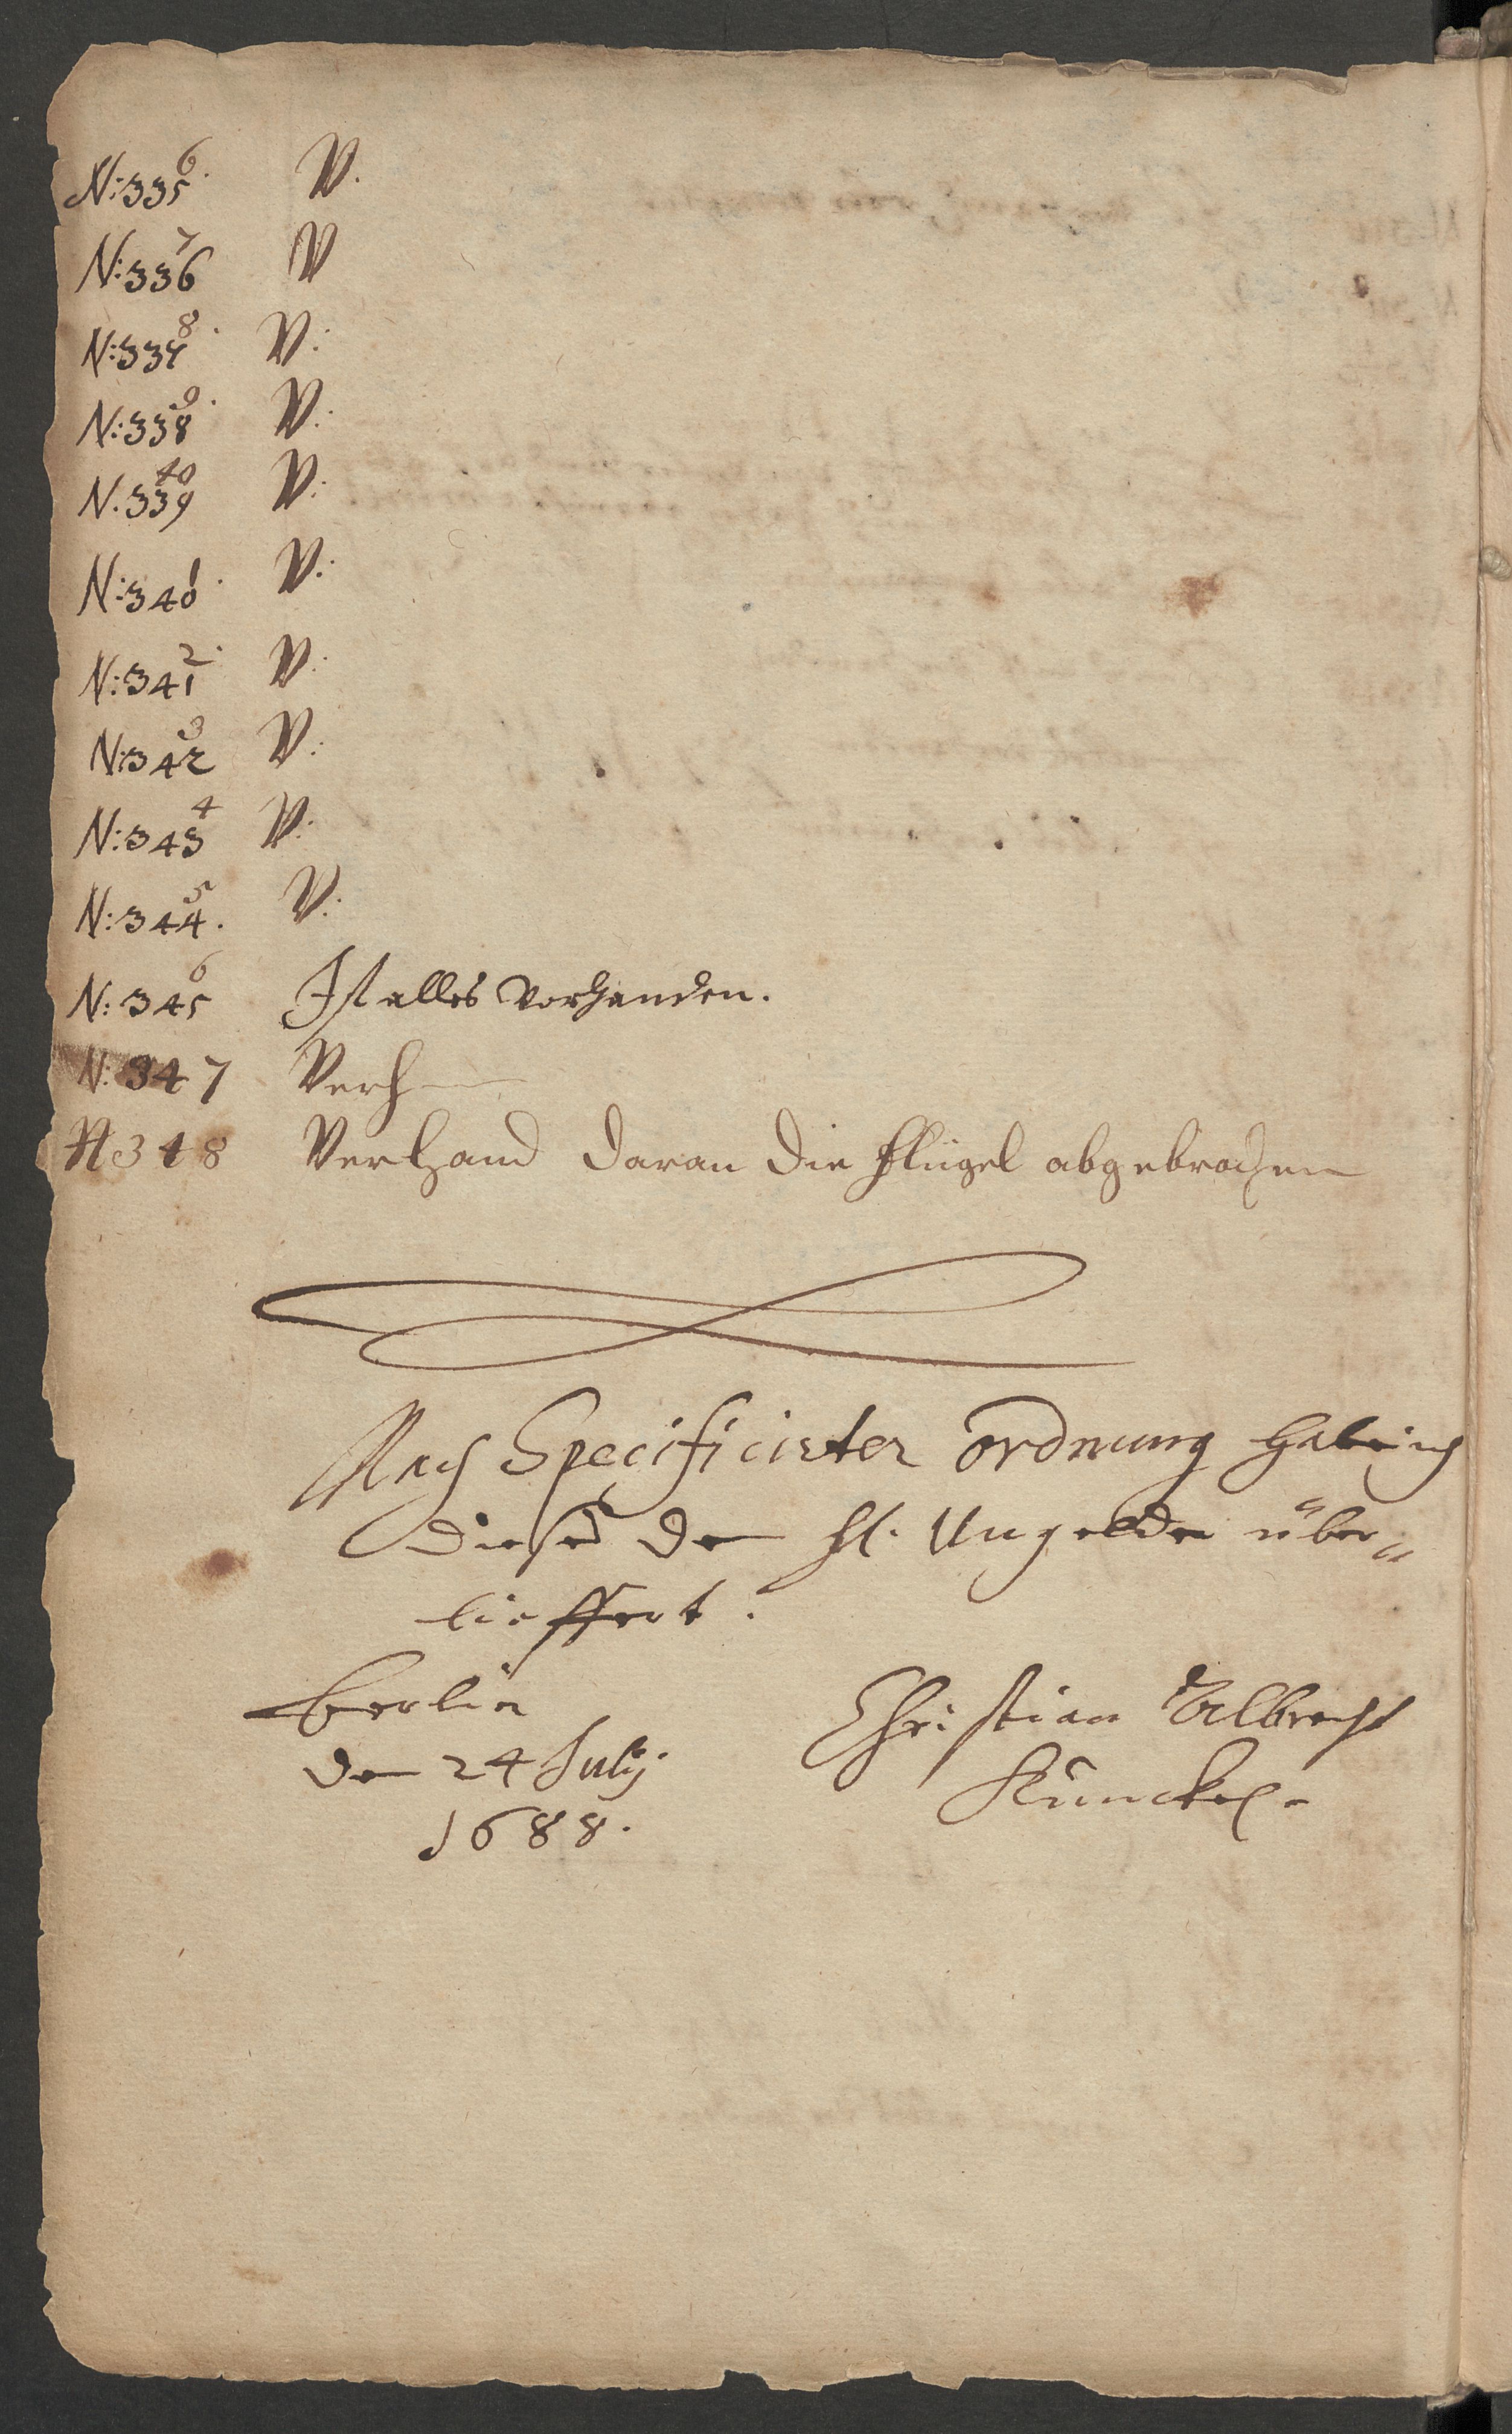 N: 335 6. V.
N: 336 7 V
N: 337 8. V:
N: 338 9. V:
N. 339 40 V:
N: 340 1. V:
N: 341 2. V:
N: 342 3 V:
N: 343 4 V:
N: 344. 5 V:
N: 345 6 Ist alles vorhanden.
N: 347 Verh
N 348 Verhand daran die flügel abgebrochen
Nach Specificirter ordnung habe ich
dieses dem H. Ungelder über„
lieffert.
Berlin
den 24 July
1688.
Christian Albrecht
Kunckel.